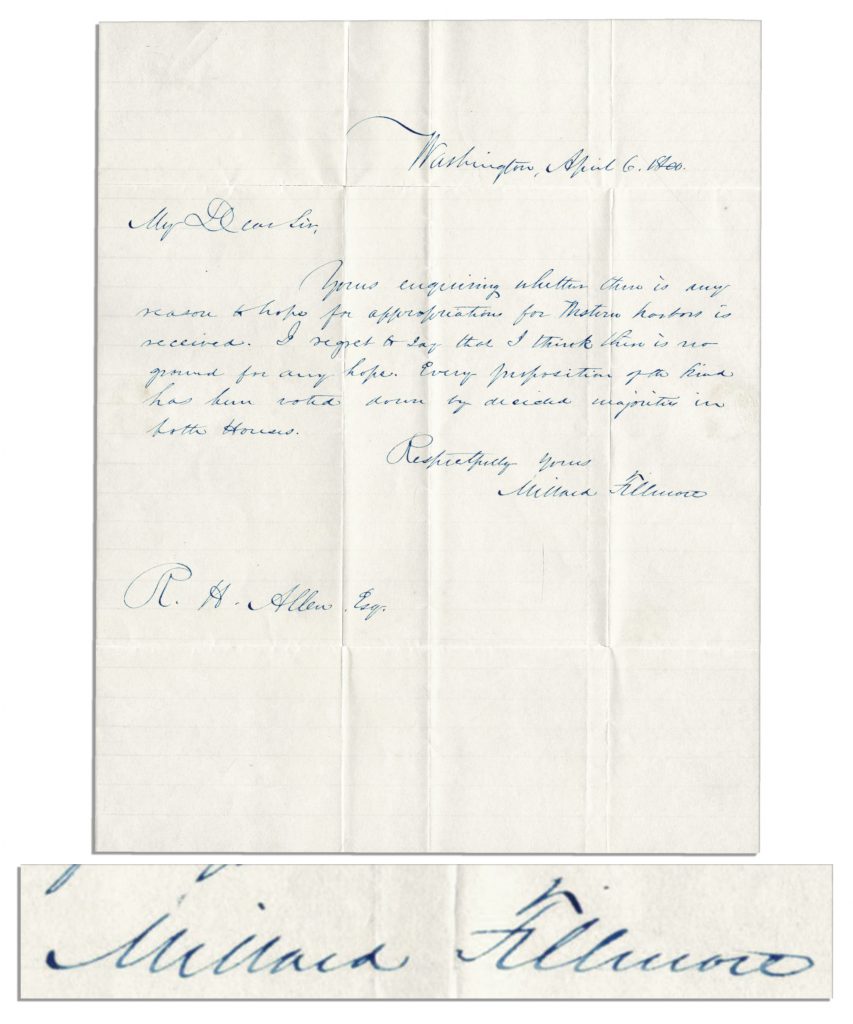 Washington, April 6. 1840.
My Dear Sir,
Yours enquiring whether there is any
reason to hope for appropriations for Western harbors is
received. I regret to say that I think there is no
ground for any hope. Every proposition of the kind
has been voted down by decided majorities in
both Houses.
Respectfully Yours
Millard Fillmore
R. H. Allen Esq.
Millard Fillmore